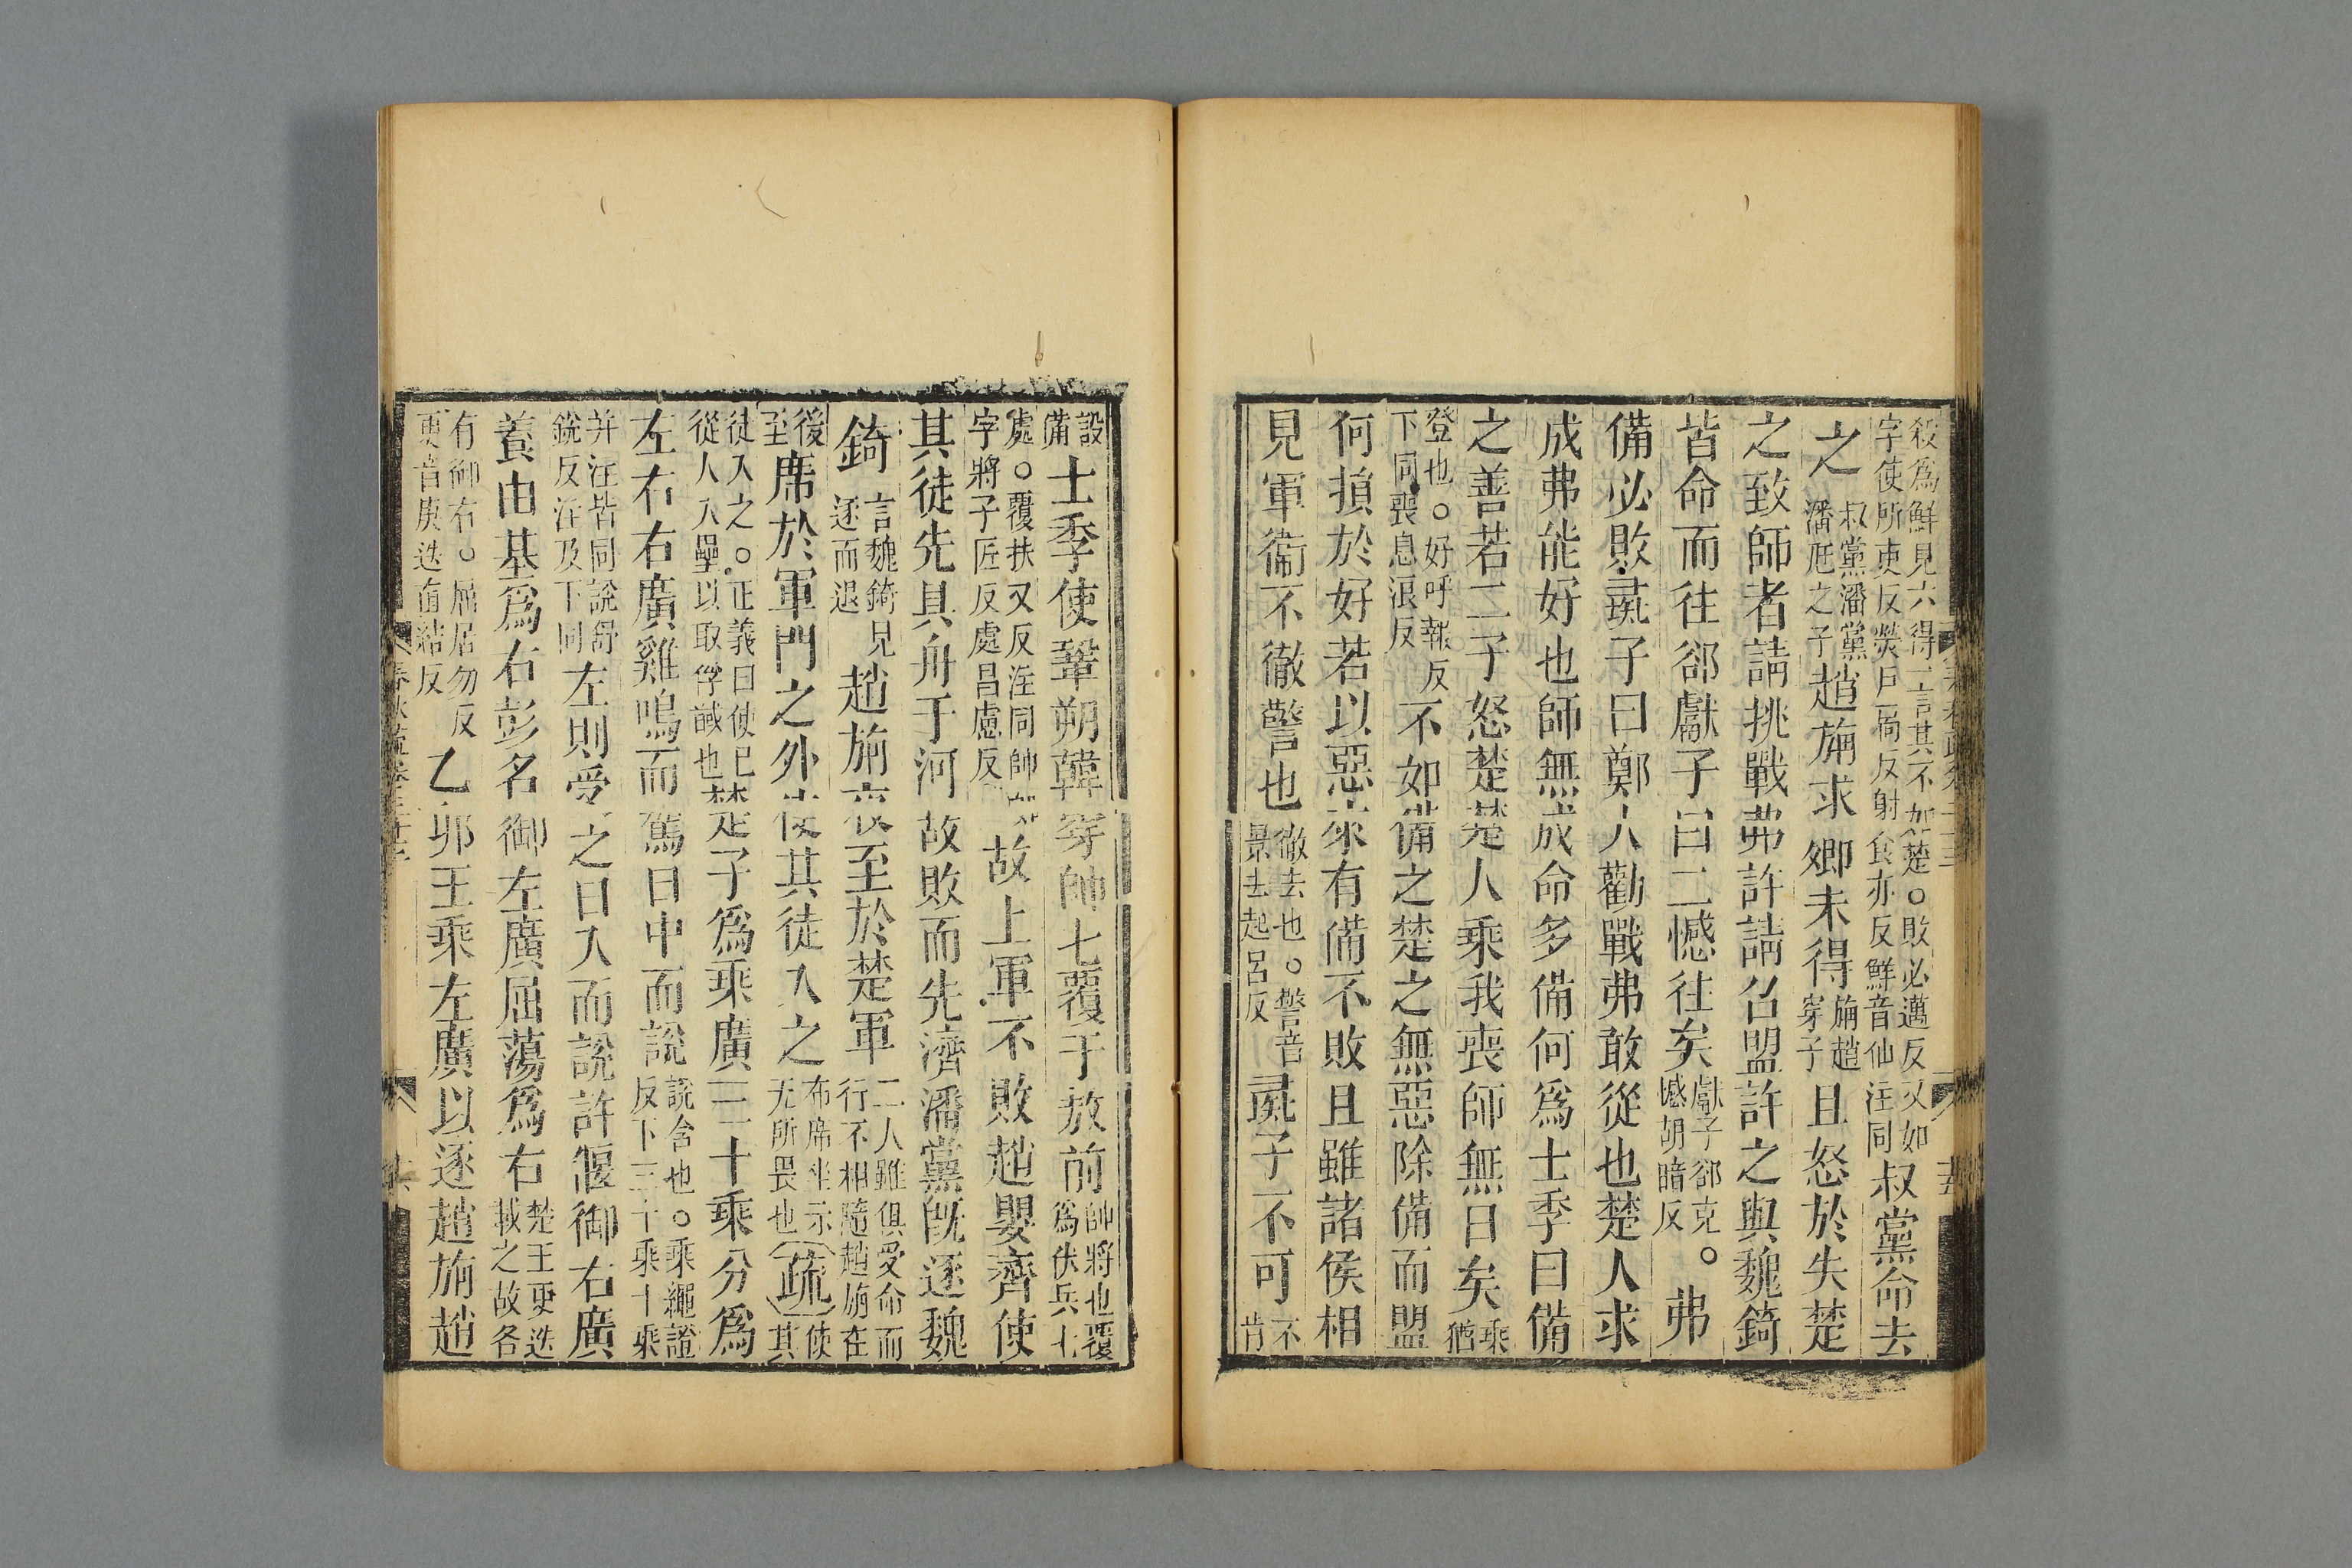 殺爲鮮見六得一言其不如楚○敗必邁反又如
字使所吏反熒戶扃反射食亦反鮮音仙注同
叔黨命去
之叔黨潘黨潘尫之子趙旃求卿未得旃趙穿子且怒於失楚
之致師者請挑戰弗許請召盟許之與魏錡
皆命而往郤獻子曰二憾往矣獻子郤克○憾胡暗反弗
備必敗彘子曰鄭人勸戰弗敢從也楚人求
成弗能好也師無成命多備何爲士季曰備
之善若二子怒楚楚人乘我喪師無日矣乘猶
登也○好呼報反下同喪息浪反不如備之楚之無惡除備而盟
何損於好若以惡來有備不敗且雖諸侯相
見軍衞不徹警也徹去也○警音景去起呂反彘子不可不肯
設備士季使鞏朔韓穿帥七覆于敖前帥將也覆爲伏兵七
處○覆扶又反注同帥字將子匠反處昌慮反故上軍不敗趙嬰齊使
其徒先具舟于河故敗而先濟潘黨旣逐魏
錡言魏錡見逐而退趙旃夜至於楚軍二人雖俱受命而行不相隨趙旃在
後至席於軍門之外使其徒入之布席坐示无所畏也疏使其
徒入之○正義曰使已從人入壘以取俘馘也楚子爲乘廣三十乘分爲
左右右廣雞鳴而駕日中而說說舍也○乘繩證反下三十乘十乘
并注皆同說舒銳反注及下同左則受之日入而說許偃御右廣
養由基爲右彭名御左廣屈蕩爲右楚王更迭載之故各
有御右○屈居勿反更音庚迭直結反乙卯王乘左廣以逐趙旃趙